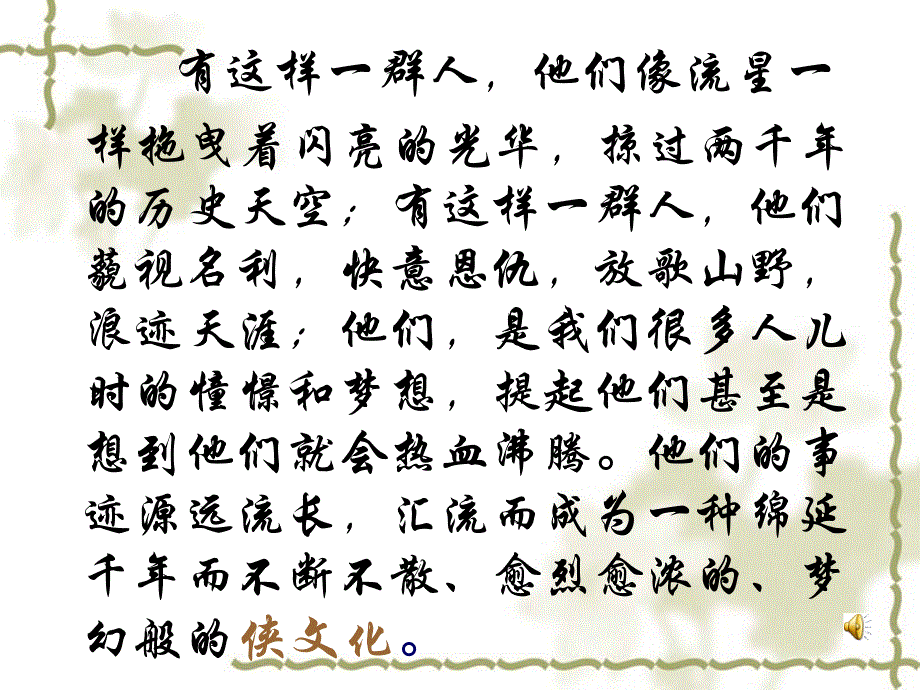 有这样一群人，他们像流星一
样拖曳着闪亮的光华，掠过两千年
的历史天空；有这样一群人，他们
藐视名利，快意恩仇，放歌山野，
浪迹天涯；他们，是我们很多人儿
时的憧憬和梦想，提起他们甚至是
想到他们就会热血沸腾。他们的事
迹源远流长，汇流而成为一种绵延
千年而不断不散、愈烈愈浓的、梦
幻般的侠文化。